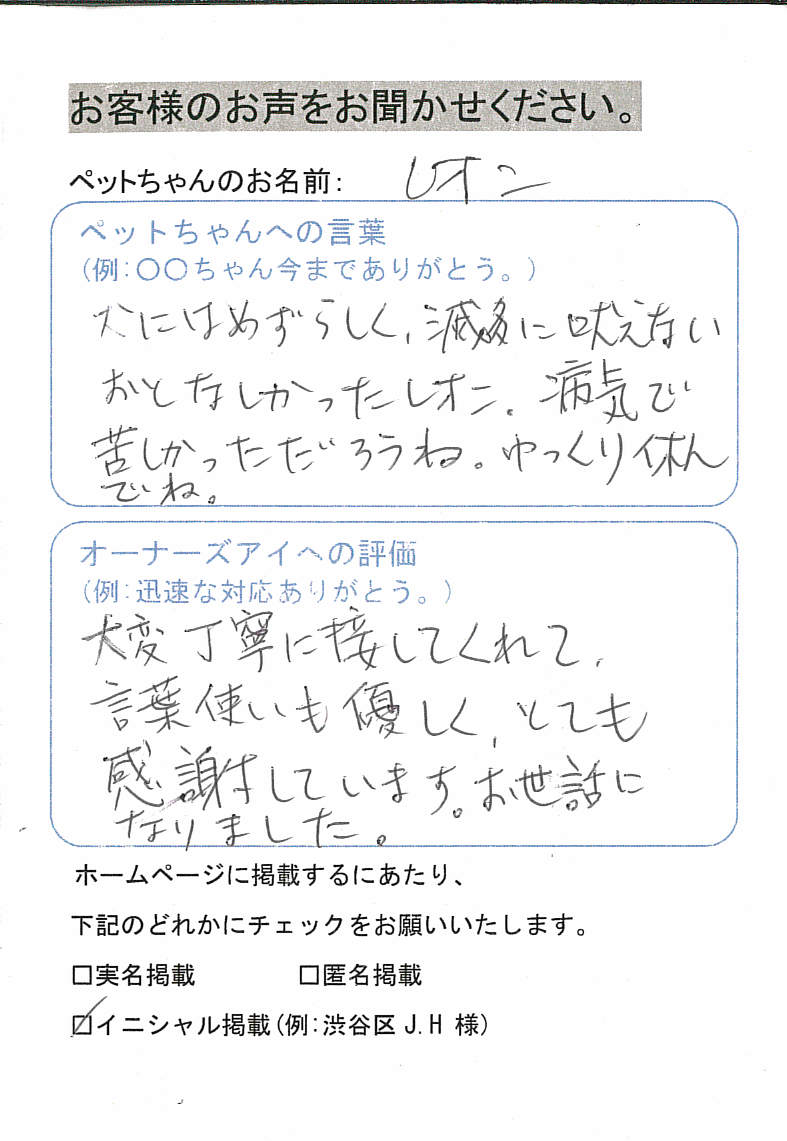 お客様のお声をお聞かせください。
ペットちゃんのお名前: レオン
ペットちゃんへの言葉
(例:〇〇ちゃん今までありがとう。)
犬にはめずらしく、滅多に吠えない
おとなしかったレオン。病気で
苦しかっただろうね。ゆっくり休ん
でいね。
オーナーズアイへの評価
(例:迅速な対応ありがとう。)
大変丁寧に接してくれて、
言葉使いも優しく、とても
感謝しています。お世話に
なりました。
ホームページに掲載するにあたり、
下記のどれかにチェックをお願いいたします。
□実名掲載 □匿名掲載
☑イニシャル掲載(例:渋谷区J.H 様)